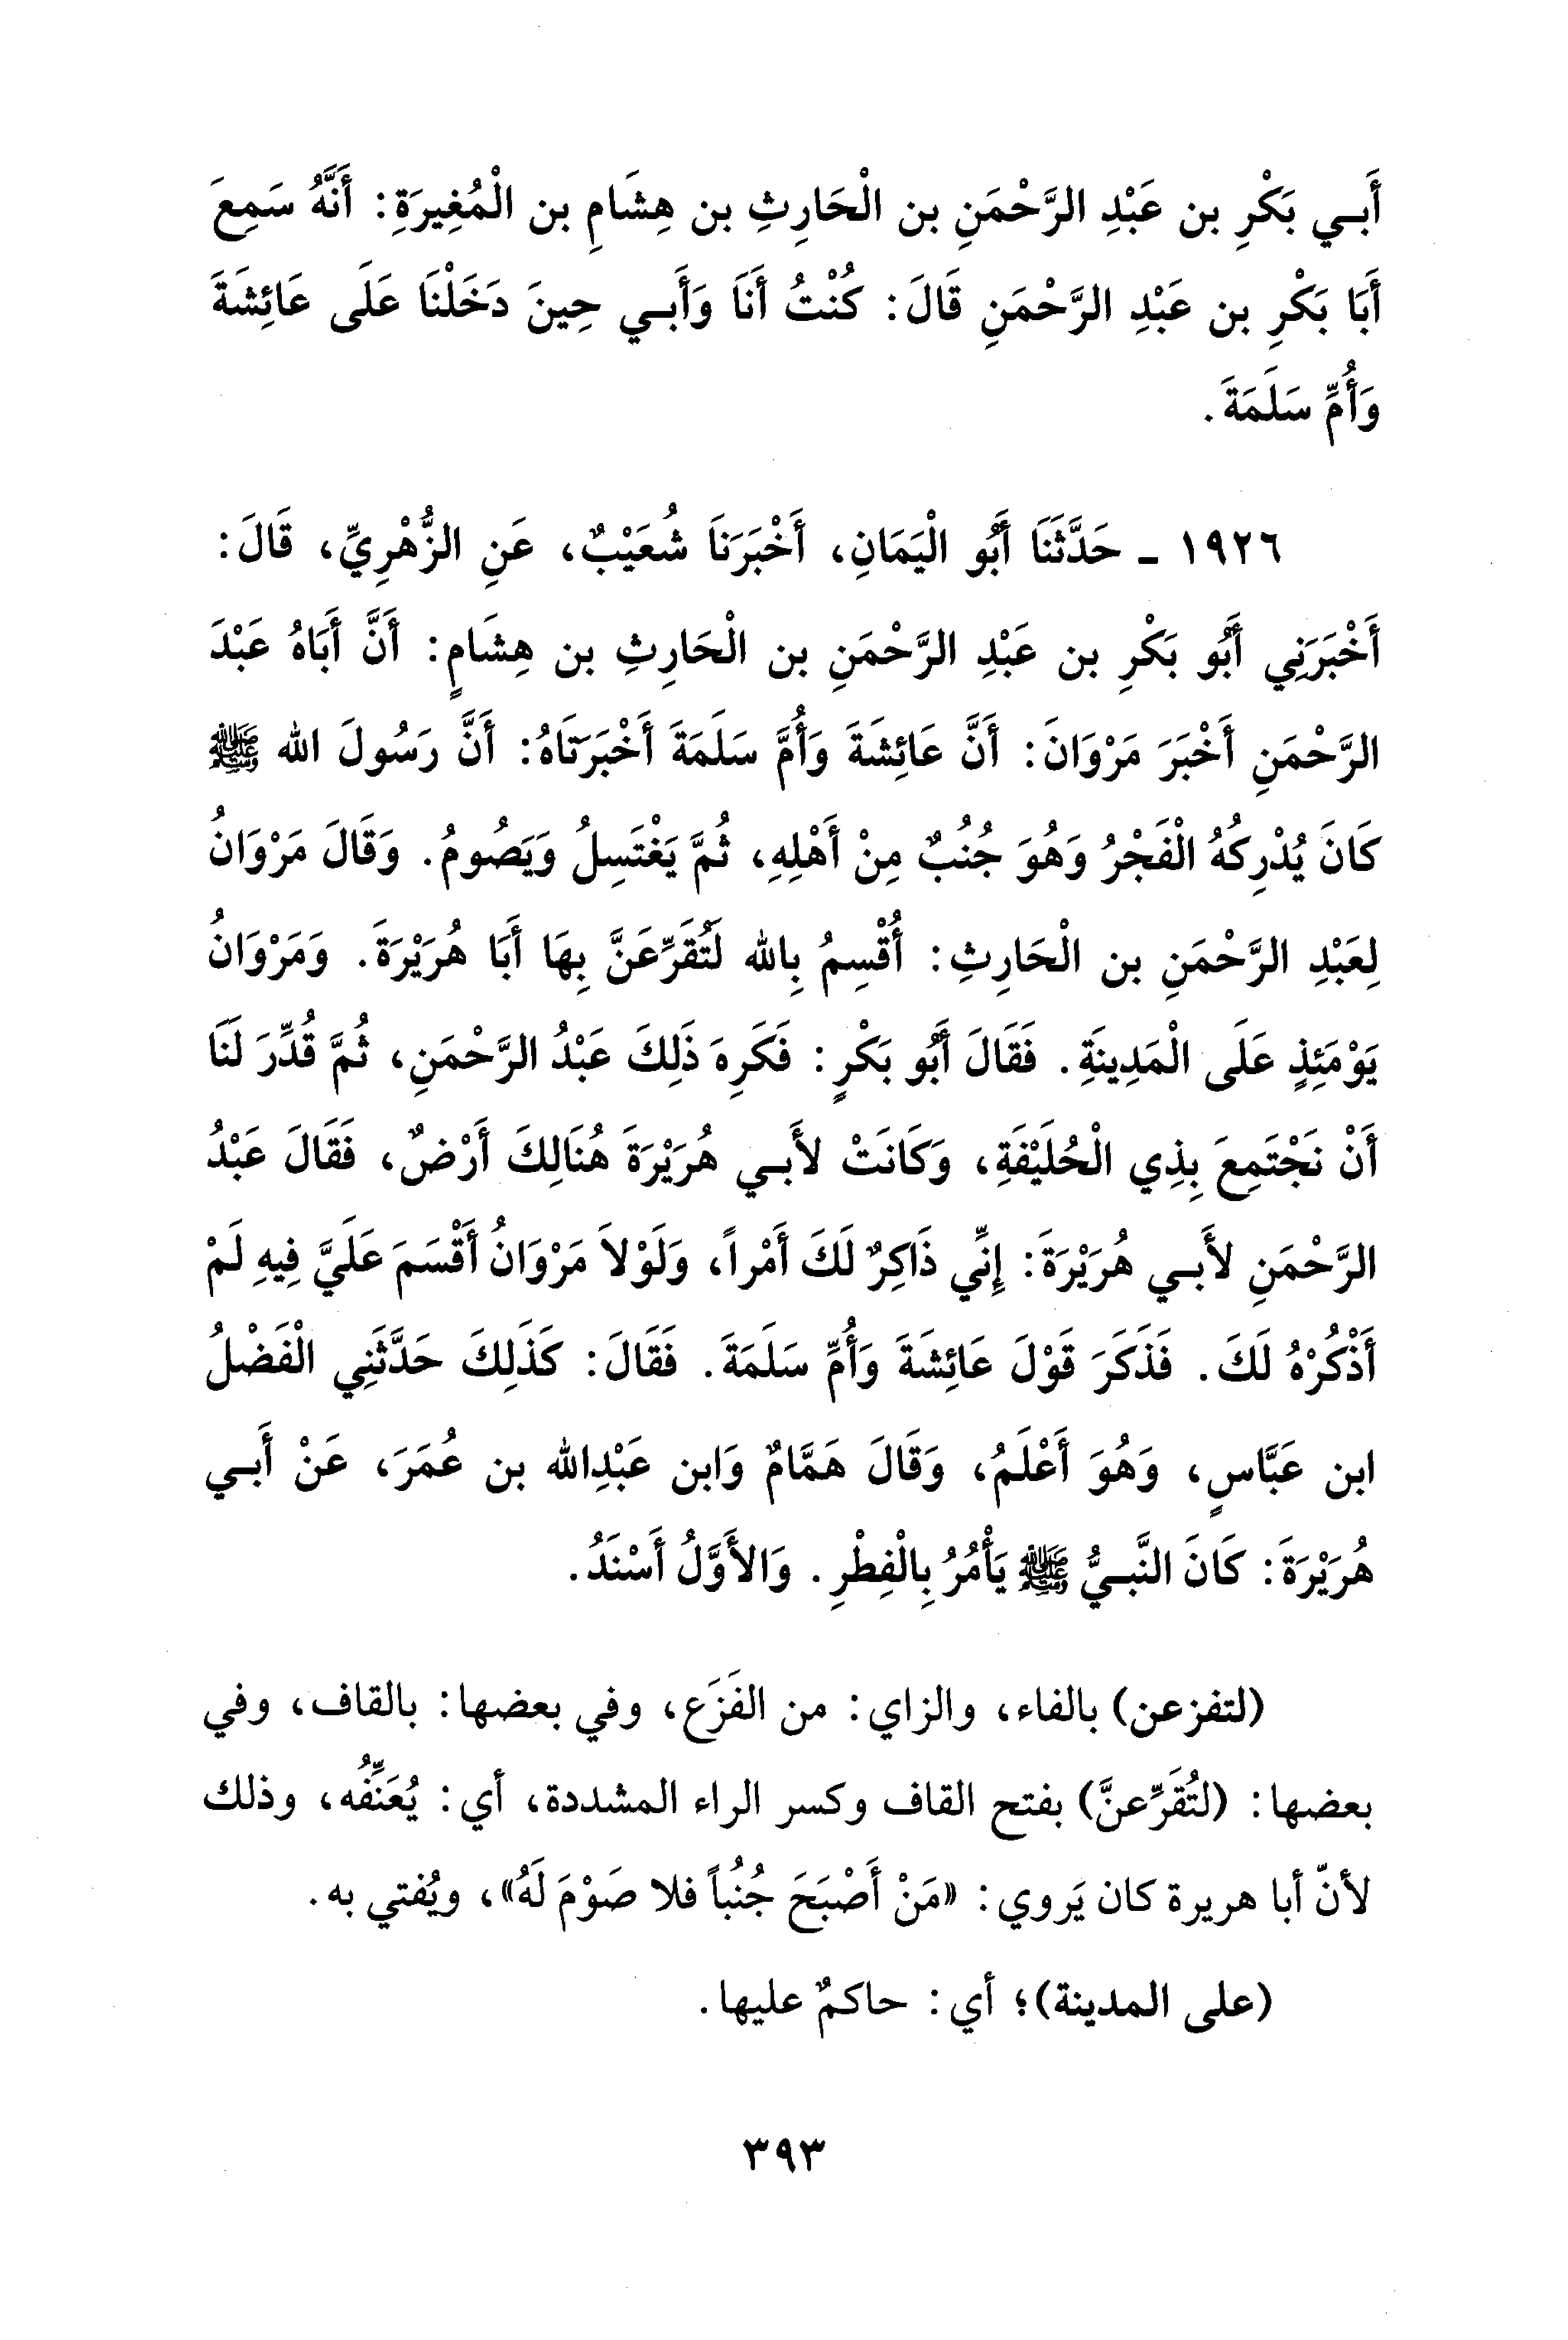 أَبِي بَكْرِ بن عَبْدِ الرَّحْمَنِ بن الْحَارِثِ بن هِشَامِ بن الْمُغِيرَةِ: أَنَّهُ سَمِعَ
أَبَا بَكْرِ بن عَبْدِ الرَّحْمَنِ قَالَ: كُنْتُ أَنَا وَأَبِي حِينَ دَخَلْنَا عَلَى عَائِشَةَ
وَأُمِّ سَلَمَةَ.
١٩٢٦ - حَدَّثَنَا أَبُو الْيَمَانِ، أَخْبَرَنَا شُعَيْبٌ، عَنِ الزُّهْرِيِّ، قَالَ:
أَخْبَرَنِي أَبُو بَكْرِ بن عَبْدِ الرَّحْمَنِ بن الْحَارِثِ بن هِشَامٍ: أَنَّ أَبَاهُ عَبْدَ
الرَّحْمَنِ أَخْبَرَ مَرْوَانَ: أَنَّ عَائِشَةَ وَأُمَّ سَلَمَةَ أَخْبَرَتَاهُ: أَنَّ رَسُولَ الله ﷺ
كَانَ يُدْرِكُهُ الْفَجْرُ وَهُوَ جُنُبٌ مِنْ أَهْلِهِ، ثُمَّ يَغْتَسِلُ وَيَصُومُ. وَقَالَ مَرْوَانُ
لِعَبْدِ الرَّحْمَنِ بن الْحَارِثِ: أُقْسِمُ بِالله لَتُقَرِّعَنَّ بِهَا أَبَا هُرَيْرَةَ. وَمَرْوَانُ
يَوْمَئِذٍ عَلَى الْمَدِينَةِ. فَقَالَ أَبُو بَكْرٍ: فَكَرِهَ ذَلِكَ عَبْدُ الرَّحْمَنِ، ثُمَّ قُدِّرَ لَنَا
أَنْ نَجْتَمِعَ بِذِي الْحُلَيْفَةِ، وَكَانَتْ لأَبِي هُرَيْرَةَ هُنَالِكَ أَرْضٌ، فَقَالَ عَبْدُ
الرَّحْمَنِ لأَبِي هُرَيْرَةَ: إِنِّي ذَاكِرٌ لَكَ أَمْراً، وَلَوْلاَ مَرْوَانُ أَقْسَمَ عَلَيَّ فِيهِ لَمْ
أَذْكُرْهُ لَكَ. فَذَكَرَ قَوْلَ عَائِشَةَ وَأُمِّ سَلَمَةَ. فَقَالَ: كَذَلِكَ حَدَّثَنِي الْفَضْلُ
ابن عَبَّاسٍ، وَهُوَ أَعْلَمُ، وَقَالَ هَمَّامٌ وَابن عَبْدِالله بن عُمَرَ، عَنْ أَبِي
هُرَيْرَةَ: كَانَ النَّبِيُّ ﷺ يَأْمُرُ بِالْفِطْرِ. وَالأَوَّلُ أَسْنَدُ.
(لتفزعن) بالفاء، والزاي: من الفَزَع، وفي بعضها: بالقاف، وفي
بعضها: (لتُقَرِّعنَّ) بفتح القاف وكسر الراء المشددة، أي: يُعَنِّفُه، وذلك
لأنّ أبا هريرة كان يَروي: «مَنْ أَصْبَحَ جُنُباً فلا صَوْمَ لَهُ»، ويُفتي به.
(على المدينة)؛ أي: حاكمٌ عليها.
٣٩٣